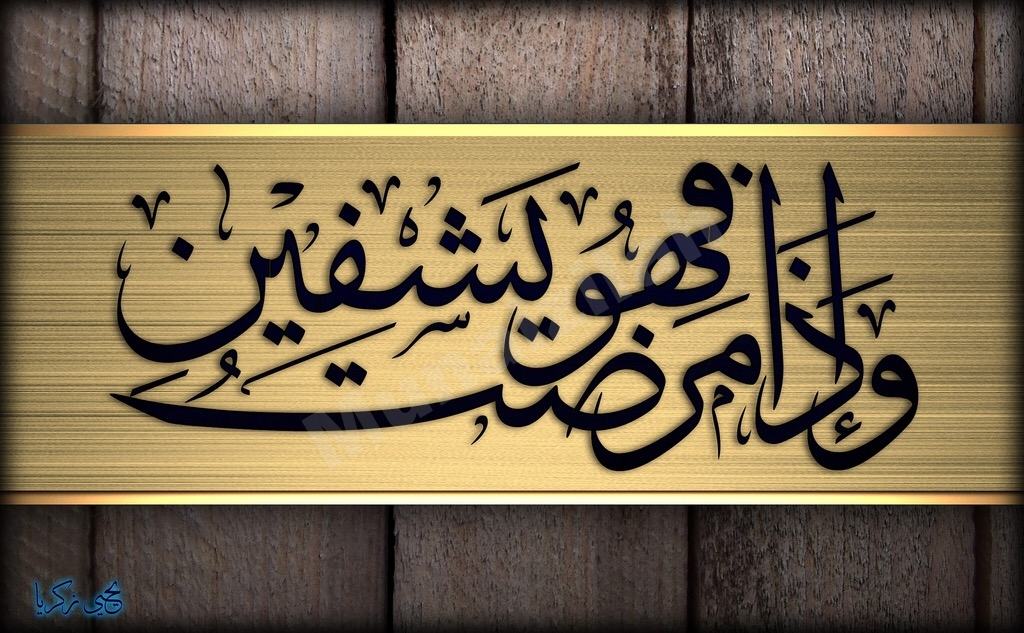 وَإِذَا مَرِضْتُ فَهُوَ يَشْفِينِ
يحيى زكريا